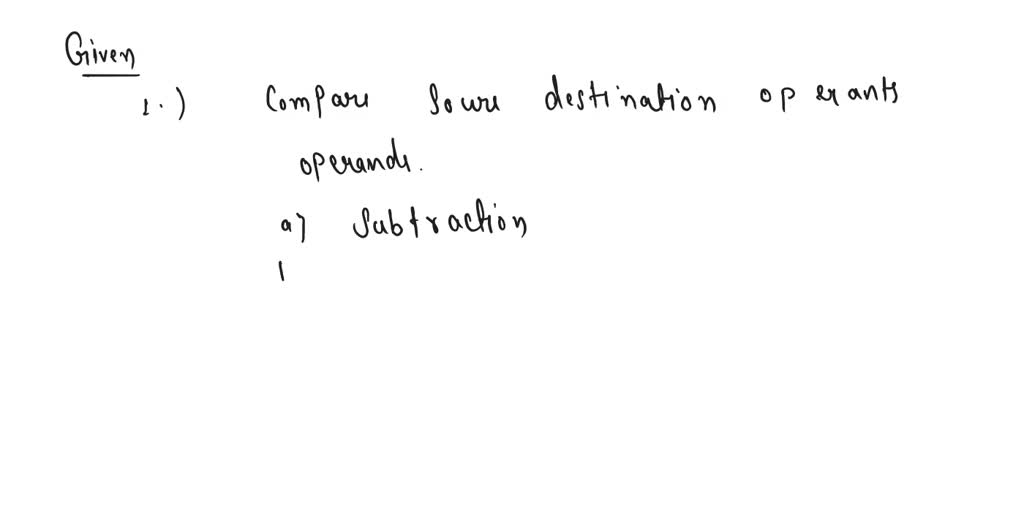 Given
1.) Compare Soure destination operants
operands.
a) Subtraction